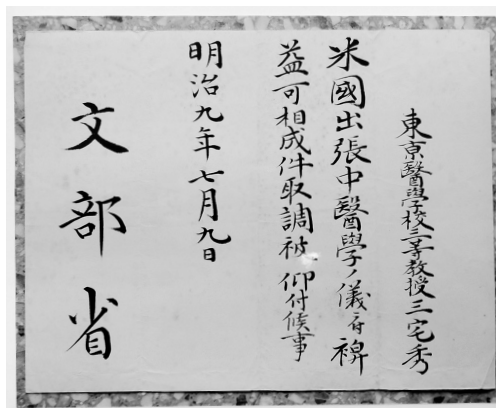 東京醫學校三等教授三宅秀
米國出張中醫學ノ儀ニ付裨
益可相成件取調被 仰付候事
明治九年七月九日
文部省